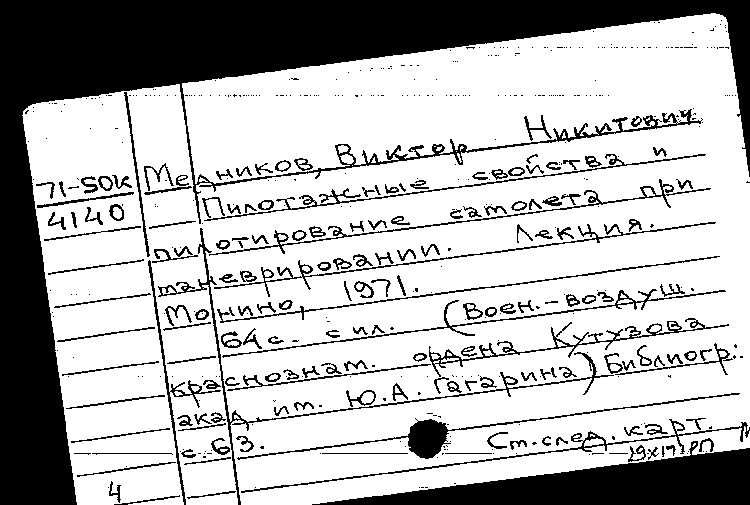 71-50К Медников, Виктор Никитович
4140 Пилотажные свойства и
пилотирование самолета при
маневрировании. Лекция.
Монино, 1971.
64с. с ил. (Воен.-воздуш.
краснознам. ордена Кутузова
акад. им. Ю.А. Гагарина) Библиогр:
с. 63.
Ст. след. карт. М
4